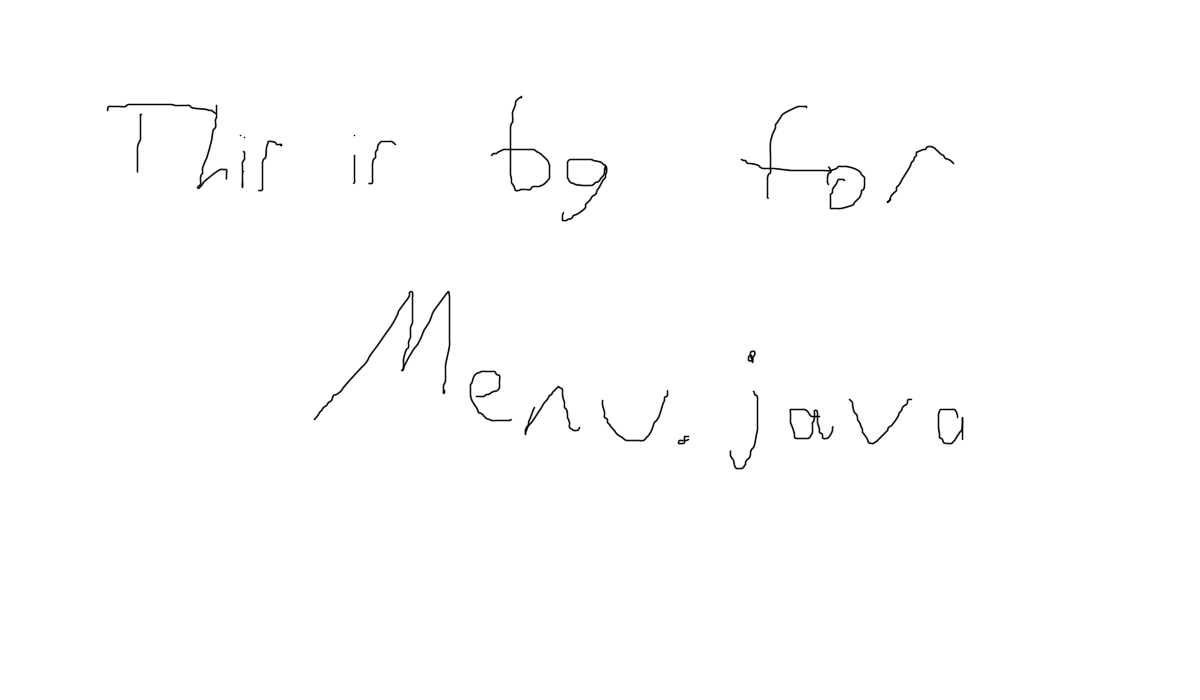 This is bg for
Menu.java